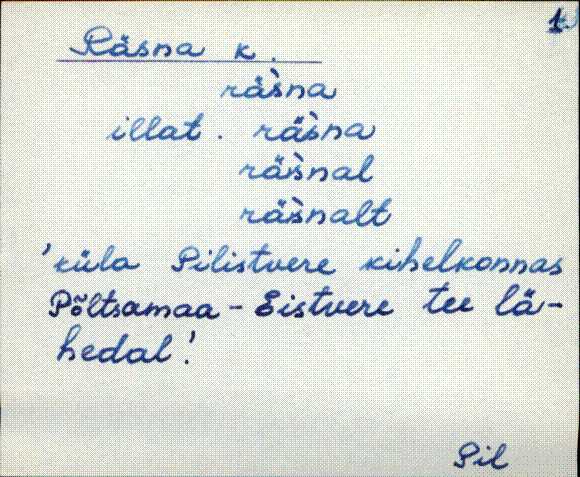 1
Räsna k.
räs̀na
illat. räs̀na
räs̀nal
räs̀nalt
'küla Pilistvere kihelkonnas
Põltsamaa - Eistvere tee lä-
hedal'.
Pil